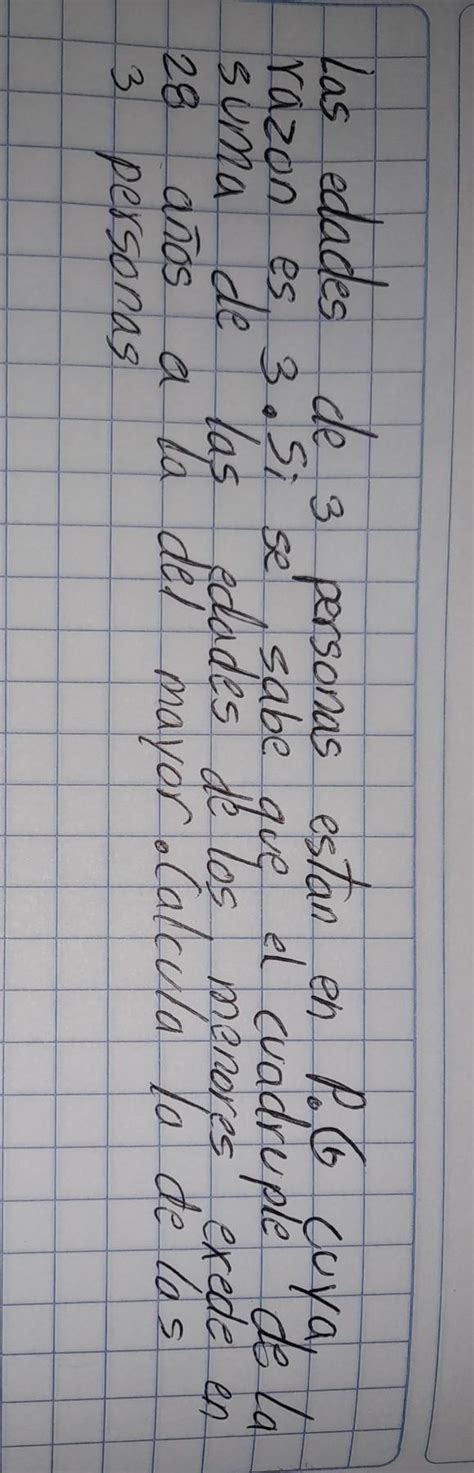 las edades de 3 personas estan en P.G cuya
razon es 3. Si se sabe que el cuadruple de la
suma de las edades de los menores exede en
28 años a la del mayor. Calcula la de las
3 personas